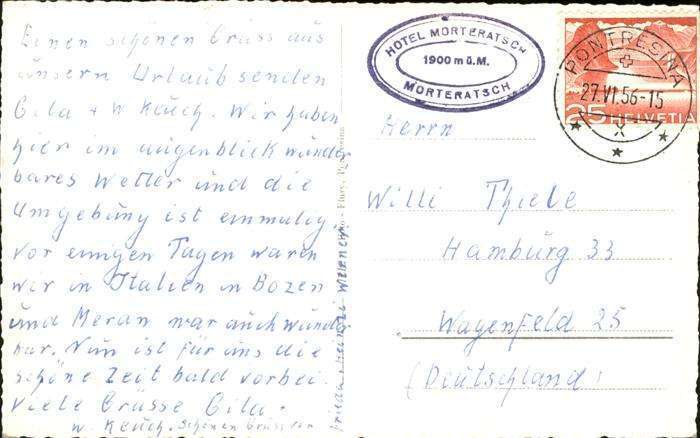 Einen schönen Gruss aus
unsern Urlaub senden
Gila + W. Keuch. Wir haben
hier im augenblick wunder
bares Wetter und die
Umgebung ist einmalig.
Vor einigen Tagen waren
wir in Italien in Bozen
und Meran war auch wunder
bar. Nun ist für uns die
schöne Zeit bald vorbei.
Viele Grüsse Gila.
W. Keuch. Schönen Gruss
HOTEL MORTERATSCH
1900 m ü. M.
MORTERATSCH
PONTRESINA
27.VI.56-15
X
25 HELVETIA
Herrn
Willi Thiele
Hamburg 33
Wagenfeld 25
(Deutschland)